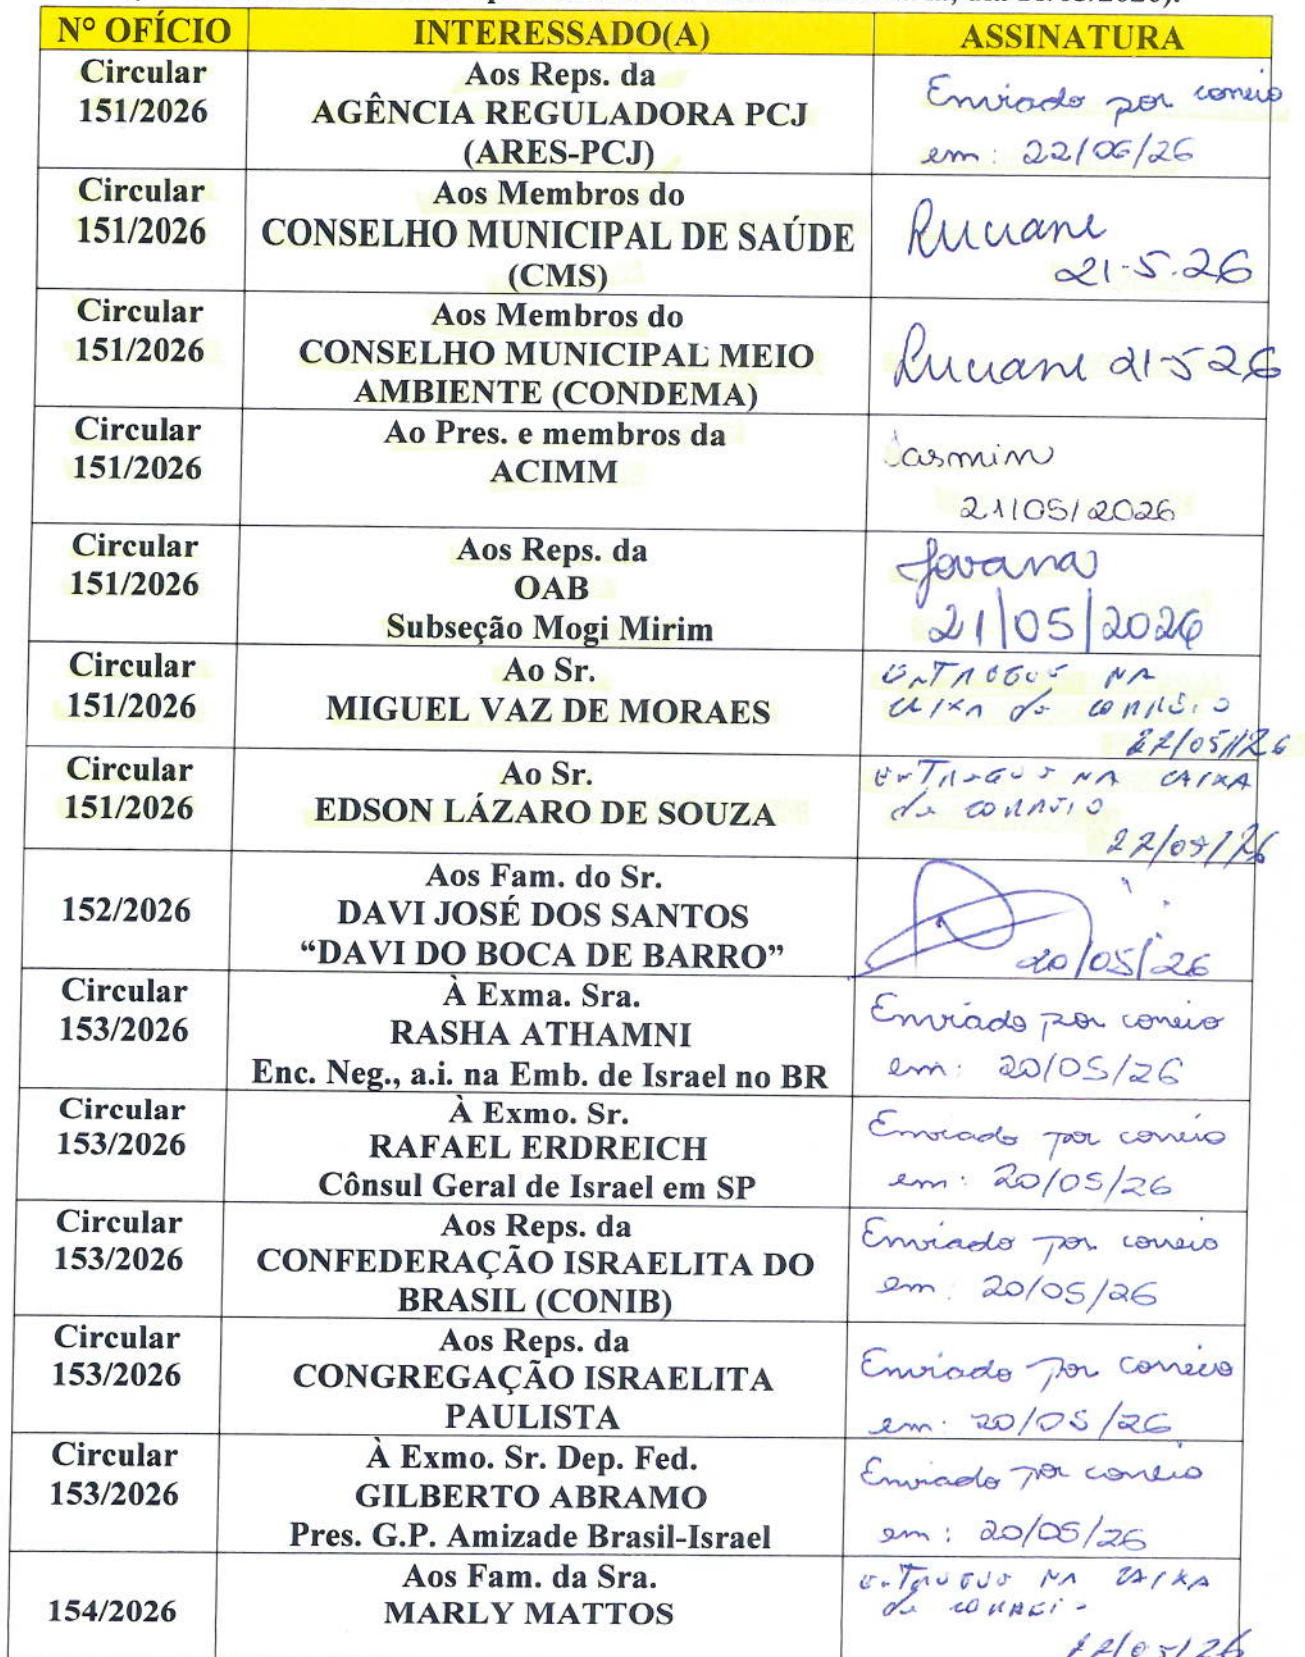 Nº OFÍCIO INTERESSADO(A) ASSINATURA
Circular
151/2026
Aos Reps. da
AGÊNCIA REGULADORA PCJ
(ARES-PCJ)
Enviado por correio
em: 22/06/26
Circular
151/2026
Aos Membros do
CONSELHO MUNICIPAL DE SAÚDE
(CMS)
Luciane
21-5-26
Circular
151/2026
Aos Membros do
CONSELHO MUNICIPAL MEIO
AMBIENTE (CONDEMA)
Luciane 21-5-26
Circular
151/2026
Ao Pres. e membros da
ACIMM
Jasmin
21/05/2026
Circular
151/2026
Aos Reps. da
OAB
Subseção Mogi Mirim
Jovana
21/05/2026
Circular
151/2026
Ao Sr.
MIGUEL VAZ DE MORAES
ENTREGUE NA
CAIXA de CORREIO
22/05/26
Circular
151/2026
Ao Sr.
EDSON LÁZARO DE SOUZA
ENTREGUE NA CAIXA
de CORREIO
22/05/26
152/2026
Aos Fam. do Sr.
DAVI JOSÉ DOS SANTOS
“DAVI DO BOCA DE BARRO”
20/05/26
Circular
153/2026
À Exma. Sra.
RASHA ATHAMNI
Enc. Neg., a.i. na Emb. de Israel no BR
Enviado por correio
em: 20/05/26
Circular
153/2026
À Exmo. Sr.
RAFAEL ERDREICH
Cônsul Geral de Israel em SP
Enviado por correio
em: 20/05/26
Circular
153/2026
Aos Reps. da
CONFEDERAÇÃO ISRAELITA DO
BRASIL (CONIB)
Enviado por correio
em: 20/05/26
Circular
153/2026
Aos Reps. da
CONGREGAÇÃO ISRAELITA
PAULISTA
Enviado por correio
em: 20/05/26
Circular
153/2026
À Exmo. Sr. Dep. Fed.
GILBERTO ABRAMO
Pres. G.P. Amizade Brasil-Israel
Enviado por correio
em: 20/05/26
154/2026
Aos Fam. da Sra.
MARLY MATTOS
ENTREGUE NA CAIXA
de CORREIO
22/05/26